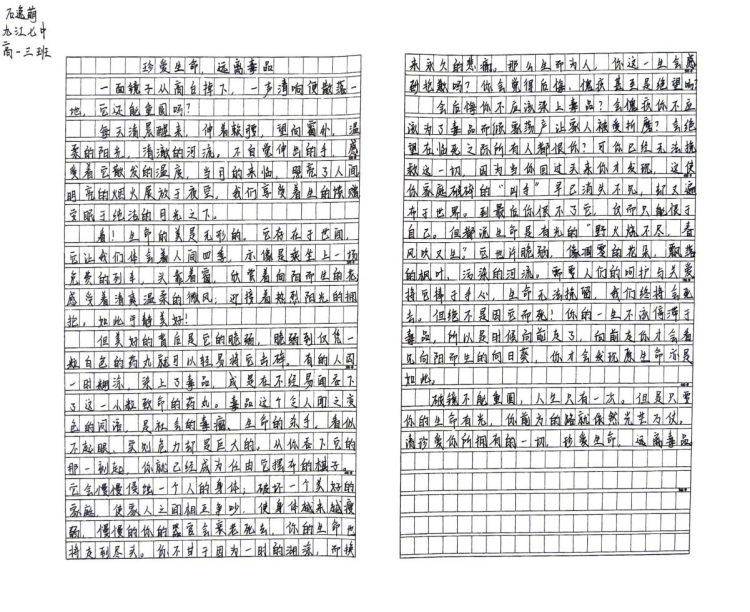 石逸萌
九江七中
高一三班
珍爱生命，远离毒品
一面镜子从高台掉下，一声清响便散落一
地，它还能重圆吗？
每天清晨醒来，伸着软腰，望向窗外，温
柔的阳光，清澈的河流。不自觉伸出的手，感
受着它散发的温度，当月的来临，照亮了人间
明亮的烟火展放于夜里，我们享受着生的馈赠
安眠于纯洁的月光之下。
看！生命的美是无形的。它存在于世间，
它让我们体会着人间四季，亦像是乘坐上一趟
免费的列车，头靠着窗，欣赏着向阳而生的花
感受着清爽温柔的微风；迎接着热烈阳光的拥
抱。如此宁静美好！
但美好的背后是它的脆弱，脆弱到仅凭一
粒白色的药丸就可以轻易将它击碎。有的人因
一时糊涂，染上了毒品，或是在不经易间吞下
了这一小粒致命的药丸。毒品这个令人闻之变
色的词语，是社会的毒瘤、生命的杀手。看似
不起眼，实则危力却是巨大的。从你吞下它的
那一刻起，你就已经成为任由它摆布的棋子。
它会慢慢侵蚀一个人的身体，破坏一个美好的
家庭，使家人之间相互争吵，使身体越来越瘦
弱，慢慢的你的器官会衰老死去，你的生命也
将走到尽头。你不甘于因为一时的糊涂，而换
来永久的悲痛。那么生而为人，你这一生会感
到抱歉吗？你会觉得后悔、愧疚甚至是绝望吗？
会后悔你不应该染上毒品？会愧疚你不应
该为了毒品而倾家荡产让家人被受折磨？会绝
望在临死之际所有人都恨你？可你已经无法挽
救这一切，因为当你回过头来你才发现，这使
你家庭破碎的“凶手”早已消失不见，却又遍
布于世界。到最后你恨不了它，你而只能恨于
自己。但都说生命是有光的“野火烧不尽，春
风吹又生？它也片脆弱，像凋零的花朵，飘落
的枫叶，活泼的河流。需要人们的呵护与关爱
将它捧于手心，生命无法挽留，我们终将会死
去。但绝不是因它而死！你的一生不该停滞于
毒品，所以是时候向前走了，向前走你才会看
见向阳而生的向日葵，你才会发现原生命亦是
如此。
破镜不能重圆，人生只有一次。但是只要
你的生命有光，你前方的路就依然光芒万仗。
请珍爱你所拥有的一切，珍爱生命，远离毒品